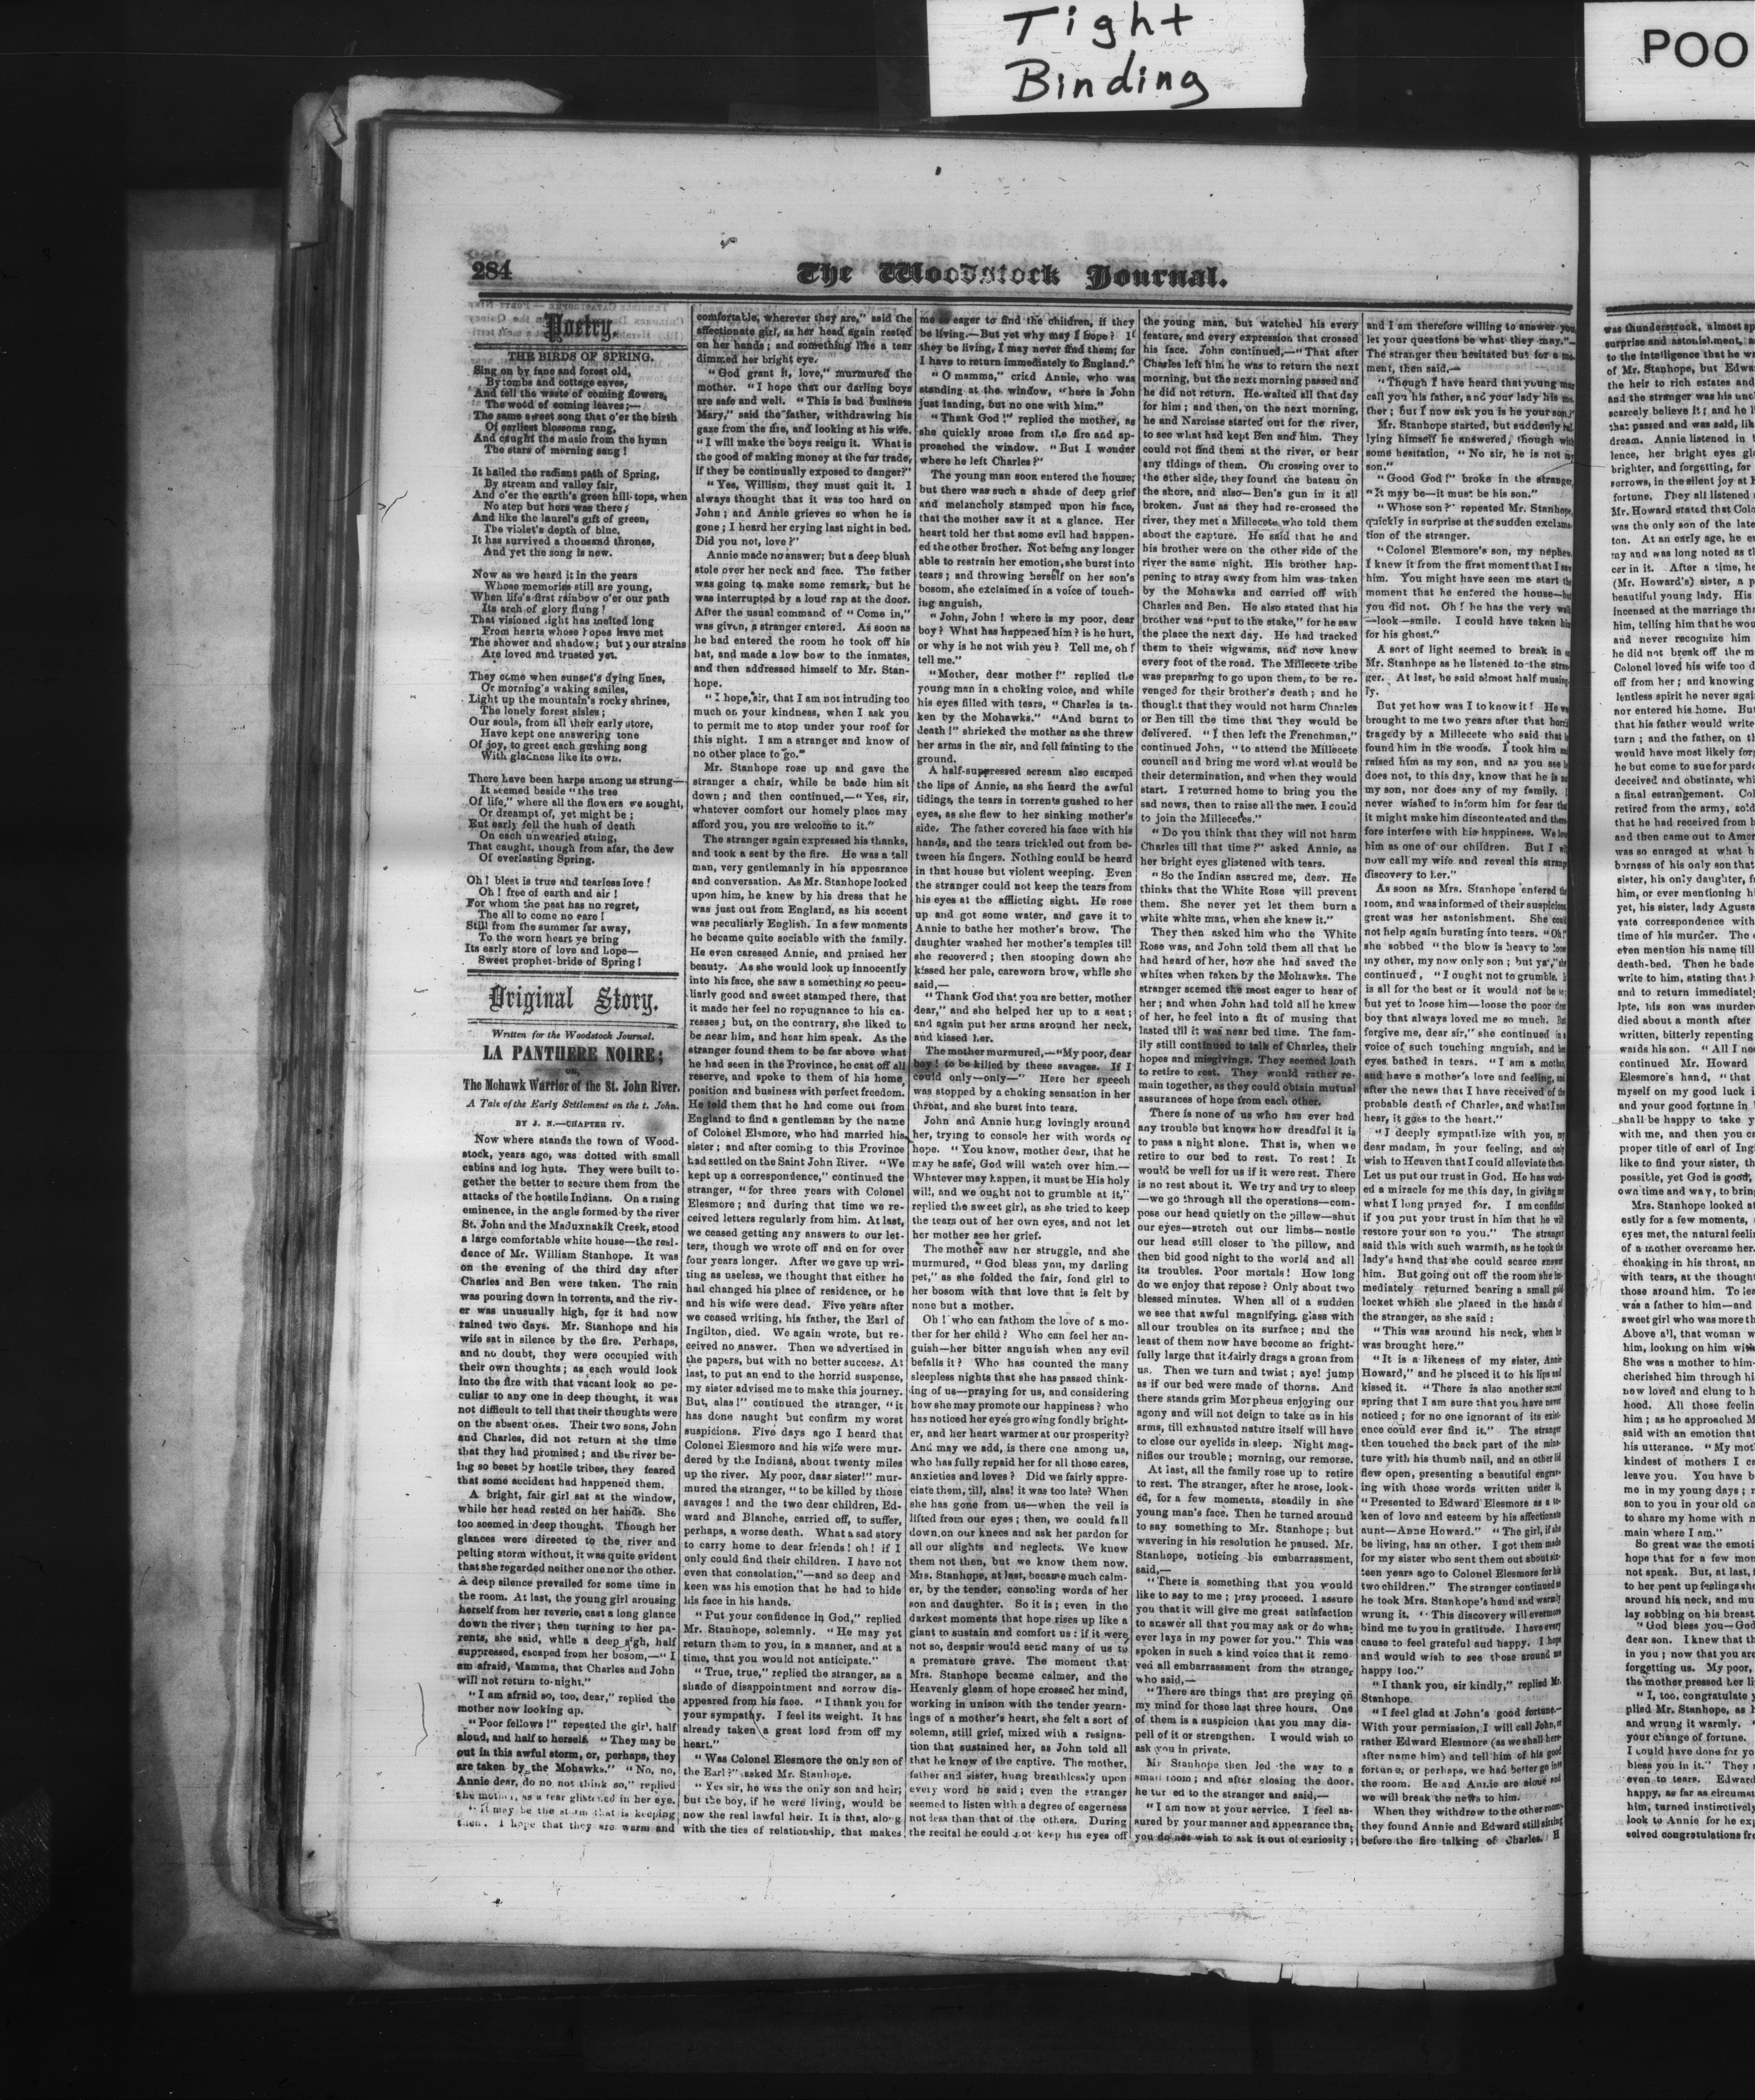 Tight
Binding
POO
284
The Woodstock Journal.
Poetry.
THE BIRDS OF SPRING.
Sing on by fane and forest old,
By tombs and cottage eaves,
And tell the waste of coming flowers,
The wood of coming leaves;—
The same sweet song that o'er the birth
Of earliest blossoms rang,
And caught the music from the hymn
The stars of morning sang!
It hailed the radiant path of Spring,
By stream and valley fair,
And o'er the earth's green hill-tops, when
No step but hers was there;
And like the laurel's gift of green,
The violet's depth of blue,
It has survived a thousand thrones,
And yet the song is new.
Now as we heard it in the years
Whose memories still are young,
When life's first rainbow o'er our path
Its arch of glory flung!
That visioned light has melted long
From hearts whose hopes have met
The shower and shadow; but your strains
Are loved and trusted yet.
They come when sunset's dying lines,
Or morning's waking smiles,
Light up the mountain's rocky shrines,
The lonely forest aisles;
Our souls, from all their early store,
Have kept one answering tone
Of joy, to greet each gushing song
With gladness like its own.
There have been harps among us strung—
It seemed beside "the tree
Of life," where all the flowers we sought,
Or dreampt of, yet might be;
But early fell the hush of death
On each unwearied string,
That caught, though from afar, the dew
Of everlasting Spring.
Oh! blest is true and tearless love!
Oh! free of earth and air!
For whom the past has no regret,
The all to come no care!
Still from the summer far away,
To the worn heart ye bring
Its early store of love and Lope—
Sweet prophet-bride of Spring!
Original Story.
Written for the Woodstock Journal.
LA PANTHERE NOIRE;
OR,
The Mohawk Warrior of the St. John River.
A Tale of the Early Settlement on the t. John.
BY J. N.—CHAPTER IV.
Now where stands the town of Wood-
stock, years ago, was dotted with small
cabins and log huts. They were built to-
gether the better to secure them from the
attacks of the hostile Indians. On a rising
eminence, in the angle formed by the river
St. John and the Maduxnakik Creek, stood
a large comfortable white house—the resi-
dence of Mr. William Stanhope. It was
on the evening of the third day after
Charles and Ben were taken. The rain
was pouring down in torrents, and the riv-
er was unusually high, for it had now
rained two days. Mr. Stanhope and his
wife sat in silence by the fire. Perhaps,
and no doubt, they were occupied with
their own thoughts; as each would look
into the fire with that vacant look so pe-
culiar to any one in deep thought, it was
not difficult to tell that their thoughts were
on the absent ones. Their two sons, John
and Charles, did not return at the time
that they had promised; and the river be-
ing so beset by hostile tribes, they feared
that some accident had happened them.
A bright, fair girl sat at the window,
while her head rested on her hands. She
too seemed in deep thought. Though her
glances were directed to the river and
pelting storm without, it was quite evident
that she regarded neither one nor the other.
A deep silence prevailed for some time in
the room. At last, the young girl arousing
herself from her reverie, cast a long glance
down the river; then turning to her pa-
rents, she said, while a deep sigh, half
suppressed, escaped from her bosom,—"I
am afraid, Mamma, that Charles and John
will not return to-night."
"I am afraid so, too, dear," replied the
mother now looking up.
"Poor fellows!" repeated the girl, half
aloud, and half to herself. "They may be
out in this awful storm, or, perhaps, they
are taken by the Mohawks." "No, no,
Annie dear, do no not think so," replied
the mother, as a tear glistened in her eye.
"It may be the storm that is keeping
them. I hope that they are warm and
comfortable, wherever they are," said the
affectionate girl, as her head again rested
on her hands; and something like a tear
dimmed her bright eye.
"God grant it, love," murmured the
mother. "I hope that our darling boys
are safe and well. "This is bad business
Mary," said the father, withdrawing his
gaze from the fire, and looking at his wife.
"I will make the boys resign it. What is
the good of making money at the fur trade,
if they be continually exposed to danger?"
"Yes, William, they must quit it. I
always thought that it was too hard on
John; and Annie grieves so when he is
gone; I heard her crying last night in bed.
Did you not, love?"
Annie made no answer; but a deep blush
stole over her neck and face. The father
was going to make some remark, but he
was interrupted by a loud rap at the door.
After the usual command of "Come in,"
was given, a stranger entered. As soon as
he had entered the room he took off his
hat, and made a low bow to the inmates,
and then addressed himself to Mr. Stan-
hope.
"I hope, sir, that I am not intruding too
much on your kindness, when I ask you
to permit me to stop under your roof for
this night. I am a stranger and know of
no other place to go."
Mr. Stanhope rose up and gave the
stranger a chair, while be bade him sit
down; and then continued,—"Yes, sir,
whatever comfort our homely place may
afford you, you are welcome to it."
The stranger again expressed his thanks,
and took a seat by the fire. He was a tall
man, very gentlemanly in his appearance
and conversation. As Mr. Stanhope looked
upon him, he knew by his dress that he
was just out from England, as his accent
was peculiarly English. In a few moments
he became quite sociable with the family.
He even caressed Annie, and praised her
beauty. As she would look up innocently
into his face, she saw a something so pecu-
liarly good and sweet stamped there, that
it made her feel no repugnance to his ca-
resses; but, on the contrary, she liked to
be near him, and hear him speak. As the
stranger found them to be far above what
he had seen in the Province, he cast off all
reserve, and spoke to them of his home,
position and business with perfect freedom.
He told them that he had come out from
England to find a gentleman by the name
of Colonel Elsmore, who had married his
sister; and after coming to this Province
had settled on the Saint John River. "We
kept up a correspondence," continued the
stranger, "for three years with Colonel
Elesmore; and during that time we re-
ceived letters regularly from him. At last,
we ceased getting any answers to our let-
ters, though we wrote off and on for over
four years longer. After we gave up wri-
ting as useless, we thought that either he
had changed his place of residence, or he
and his wife were dead. Five years after
we ceased writing, his father, the Earl of
Ingilton, died. We again wrote, but re-
ceived no answer. Then we advertised in
the papers, but with no better success. At
last, to put an end to the horrid suspense,
my sister advised me to make this journey.
But, alas!" continued the stranger, "it
has done naught but confirm my worst
suspicions. Five days ago I heard that
Colonel Elesmore and his wife were mur-
dered by the Indians, about twenty miles
up the river. My poor, dear sister!" mur-
mured the stranger, "to be killed by those
savages! and the two dear children, Ed-
ward and Blanche, carried off, to suffer,
perhaps, a worse death. What a sad story
to carry home to dear friends! oh! if I
only could find their children. I have not
even that consolation,"—and so deep and
keen was his emotion that he had to hide
his face in his hands.
"Put your confidence in God," replied
Mr. Stanhope, solemnly. "He may yet
return them to you, in a manner, and at a
time, that you would not anticipate."
"True, true," replied the stranger, as a
shade of disappointment and sorrow dis-
appeared from his face. "I thank you for
your sympathy. I feel its weight. It has
already taken a great load from off my
heart."
"Was Colonel Elesmore the only son of
the Earl?" asked Mr. Stanhope.
"Yes sir, he was the only son and heir;
but the boy, if he were living, would be
now the real lawful heir. It is that, along
with the ties of relationship, that makes
me so eager to find the children, if they
be living.—But yet why may I hope? If
they be living, I may never find them; for
I have to return immediately to England."
"O mamma," cried Annie, who was
standing at the window, "here is John
just landing, but no one with him."
"Thank God!" replied the mother, as
she quickly arose from the fire and ap-
proached the window. "But I wonder
where he left Charles?"
The young man soon entered the house;
but there was such a shade of deep grief
and melancholy stamped upon his face,
that the mother saw it at a glance. Her
heart told her that some evil had happen-
ed the other brother. Not being any longer
able to restrain her emotion, she burst into
tears; and throwing herself on her son's
bosom, she exclaimed in a voice of touch-
ing anguish,
"John, John! where is my poor, dear
boy? What has happened him? is he hurt,
or why is he not with you? Tell me, oh!
tell me."
"Mother, dear mother!" replied the
young man in a choking voice, and while
his eyes filled with tears, "Charles is ta-
ken by the Mohawks." "And burnt to
death!" shrieked the mother as she threw
her arms in the air, and fell fainting to the
ground.
A half-suppressed scream also escaped
the lips of Annie, as she heard the awful
tidings, the tears in torrents gushed to her
eyes, as she flew to her sinking mother's
side. The father covered his face with his
hands, and the tears trickled out from be-
tween his fingers. Nothing could be heard
in that house but violent weeping. Even
the stranger could not keep the tears from
his eyes at the afflicting sight. He rose
up and got some water, and gave it to
Annie to bathe her mother's brow. The
daughter washed her mother's temples till
she recovered; then stooping down she
kissed her pale, careworn brow, while she
said,—
"Thank God that you are better, mother
dear," and she helped her up to a seat;
and again put her arms around her neck,
and kissed her.
The mother murmured,—"My poor, dear
boy! to be killed by these savages. If I
could only—only—" Here her speech
was stopped by a choking sensation in her
throat, and she burst into tears.
John and Annie hung lovingly around
her, trying to console her with words of
hope. "You know, mother dear, that he
may be safe, God will watch over him.—
Whatever may happen, it must be His holy
will, and we ought not to grumble at it,"
replied the sweet girl, as she tried to keep
the tears out of her own eyes, and not let
her mother see her grief.
The mother saw her struggle, and she
murmured, "God bless you, my darling
pet," as she folded the fair, fond girl to
her bosom with that love that is felt by
none but a mother.
Oh! who can fathom the love of a mo-
ther for her child? Who can feel her an-
guish—her bitter anguish when any evil
befalls it? Who has counted the many
sleepless nights that she has passed think-
ing of us—praying for us, and considering
how she may promote our happiness? who
has noticed her eyes growing fondly bright-
er, and her heart warmer at our prosperity?
And may we add, is there one among us,
who has fully repaid her for all those cares,
anxieties and loves? Did we fairly appre-
ciate them, till, alas! it was too late? When
she has gone from us—when the veil is
lifted from our eyes; then, we could fall
down on our knees and ask her pardon for
all our slights and neglects. We knew
them not then, but we know them now.
Mrs. Stanhope, at last, became much calm-
er, by the tender, consoling words of her
son and daughter. So it is; even in the
darkest moments that hope rises up like a
giant to sustain and comfort us: if it were
not so, despair would send many of us to
a premature grave. The moment that
Mrs. Stanhope became calmer, and the
Heavenly gleam of hope crossed her mind,
working in unison with the tender yearn-
ings of a mother's heart, she felt a sort of
solemn, still grief, mixed with a resigna-
tion that sustained her, as John told all
that he knew of the captive. The mother,
father and sister, hung breathlessly upon
every word he said; even the stranger
seemed to listen with a degree of eagerness
not less than that of the others. During
the recital he could not keep his eyes off
the young man, but watched his every
feature, and every expression that crossed
his face. John continued,—"That after
Charles left him he was to return the next
morning, but the next morning passed and
he did not return. He waited all that day
for him; and then, on the next morning,
he and Narcisse started out for the river,
to see what had kept Ben and him. They
could not find them at the river, or hear
any tidings of them. On crossing over to
the other side, they found the bateau on
the shore, and also—Ben's gun in it all
broken. Just as they had re-crossed the
river, they met a Millecete who told them
about the capture. He said that he and
his brother were on the other side of the
river the same night. His brother hap-
pening to stray away from him was taken
by the Mohawks and carried off with
Charles and Ben. He also stated that his
brother was "put to the stake," for he saw
the place the next day. He had tracked
them to their wigwams, and now knew
every foot of the road. The Millecete tribe
was preparing to go upon them, to be re-
venged for their brother's death; and he
thought that they would not harm Charles
or Ben till the time that they would be
delivered. "I then left the Frenchman,"
continued John, "to attend the Millecete
council and bring me word what would be
their determination, and when they would
start. I returned home to bring you the
sad news, then to raise all the men I could
to join the Millecetes."
"Do you think that they will not harm
Charles till that time?" asked Annie, as
her bright eyes glistened with tears.
"So the Indian assured me, dear. He
thinks that the White Rose will prevent
them. She never yet let them burn a
white white man, when she knew it."
They then asked him who the White
Rose was, and John told them all that he
had heard of her, how she had saved the
whites when taken by the Mohawks. The
stranger seemed the most eager to hear of
her; and when John had told all he knew
of her, he feel into a fit of musing that
lasted till it was near bed time. The fam-
ily still continued to talk of Charles, their
hopes and misgivings. They seemed loath
to retire to rest. They would rather re-
main together, as they could obtain mutual
assurances of hope from each other.
There is none of us who has ever had
any trouble but knows how dreadful it is
to pass a night alone. That is, when we
retire to our bed to rest. To rest! It
would be well for us if it were rest. There
is no rest about it. We try and try to sleep
—we go through all the operations—com-
pose our head quietly on the pillow—shut
our eyes—stretch out our limbs—nestle
our head still closer to the pillow, and
then bid good night to the world and all
its troubles. Poor mortals! How long
do we enjoy that repose? Only about two
blessed minutes. When all of a sudden
we see that awful magnifying glass with
all our troubles on its surface; and the
least of them now have become so fright-
fully large that it fairly drags a groan from
us. Then we turn and twist; aye! jump
as if our bed were made of thorns. And
there stands grim Morpheus enjoying our
agony and will not deign to take us in his
arms, till exhausted nature itself will have
to close our eyelids in sleep. Night mag-
nifies our trouble; morning, our remorse.
At last, all the family rose up to retire
to rest. The stranger, after he arose, look-
ed, for a few moments, steadily in she
young man's face. Then he turned around
to say something to Mr. Stanhope; but
wavering in his resolution he paused. Mr.
Stanhope, noticing his embarrassment,
said,—
"There is something that you would
like to say to me; pray proceed. I assure
you that it will give me great satisfaction
to answer all that you may ask or do what
ever lays in my power for you." This was
spoken in such a kind voice that it remo
ved all embarrassment from the stranger
who said,—
"There are things that are preying on
my mind for those last three hours. One
of them is a suspicion that you may dis-
pell of it or strengthen. I would wish to
ask you in private.
Mr Stanhope then led the way to a
small room; and after closing the door,
he tur ed to the stranger and said,—
"I am now at your service. I feel as-
sured by your manner and appearance that
you do not wish to ask it out of curiosity;
and I am therefore willing to answer you,
let your questions be what they may."—
The stranger then hesitated but for a mo-
ment, then said,—
"Though I have heard that young man
call you his father, and your lady his mo-
ther; but I now ask you is he your son?"
Mr. Stanhope started, but suddenly
lying himself he answered, though with
some hesitation, "No sir, he is not my
son."
"Good God!" broke in the stranger,
"It may be—it must be his son."
"Whose son?" repeated Mr. Stanhope,
quickly in surprise at the sudden exclama-
tion of the stranger.
"Colonel Elesmore's son, my nephew.
I knew it from the first moment that I saw
him. You might have seen me start the
moment that he entered the house—but
you did not. Oh! he has the very walk
—look—smile. I could have taken him
for his ghost."
A sort of light seemed to break in on
Mr. Stanhope as he listened to the stran-
ger. At last, he said almost half musing-
ly.
But yet how was I to know it! He was
brought to me two years after that horrid
tragedy by a Millecete who said that he
found him in the woods. I took him and
raised him as my son, and as you see he
does not, to this day, know that he is not
my son, nor does any of my family. I
never wished to inform him for fear that
it might make him discontented and there-
fore interfere with his happiness. We love
him as one of our children. But I will
now call my wife and reveal this strange
discovery to her."
As soon as Mrs. Stanhope entered the
room, and was informed of their suspicions
great was her astonishment. She could
not help again bursting into tears. "Oh!"
she sobbed "the blow is heavy to loose
my other, my now only son; but yet," she
continued, "I ought not to grumble. It
is all for the best or it would not be so;
but yet to loose him—loose the poor dear
boy that always loved me so much. But
forgive me, dear sir," she continued in a
voice of such touching anguish, and her
eyes bathed in tears. "I am a mother,
and have a mother's love and feeling, and
after the news that I have received of the
probable death of Charles, and what I now
hear, it goes to the heart."
"I deeply sympathize with you, my
dear madam, in your feeling, and only
wish to Heaven that I could alleviate them.
Let us put our trust in God. He has work-
ed a miracle for me this day, in giving me
what I long prayed for. I am confident
if you put your trust in him that he will
restore your son to you." The stranger
said this with such warmth, as he took the
lady's hand that she could scarce answer
him. But going out off the room she im-
mediately returned bearing a small gold
locket which she placed in the hands of
the stranger, as she said:
"This was around his neck, when he
was brought here."
"It is a likeness of my sister, Annie
Howard," and he placed it to his lips and
kissed it. "There is also another secret
spring that I am sure that you have never
noticed; for no one ignorant of its exist-
ence could ever find it." The stranger
then touched the back part of the minia-
ture with his thumb nail, and an other lid
flew open, presenting a beautiful engrav-
ing with those words written under it,
"Presented to Edward Elesmore as a to-
ken of love and esteem by his affectionate
aunt—Anne Howard." "The girl, if she
be living, has an other. I got them made
for my sister who sent them out about six-
teen years ago to Colonel Elesmore for his
two children." The stranger continued as
he took Mrs. Stanhope's hand and warmly
wrung it. "This discovery will evermore
bind me to you in gratitude. I have every
cause to feel grateful and happy. I hope
and would wish to see those around me
happy too."
"I thank you, sir kindly," replied Mr.
Stanhope.
"I feel glad at John's good fortune.—
With your permission, I will call John, or
rather Edward Elesmore (as we shall here-
after name him) and tell him of his good
fortune, or perhaps, we had better go into
the room. He and Annie are alone and
we will break the news to him.
When they withdrew to the other room,
they found Annie and Edward still sitting
before the fire talking of Charles. H
was thunderstruck, almost sp
surprise and astonishment, a
to the intelligence that he wa
of Mr. Stanhope, but Edwa
the heir to rich estates and
and the stranger was his uncl
scarcely believe it; and he l
that passed and was said, lik
dream. Annie listened in
lence, her bright eyes gl
brighter, and forgetting, for
sorrows, in the silent joy at
fortune. They all listened
Mr. Howard stated that Colo
was the only son of the late
ton. At an early age, he e
my and was long noted as t
cer in it. After a time, he
(Mr. Howard's) sister, a p
beautiful young lady. His
incensed at the marriage th
him, telling him that he wou
and never recognize him
he did not break off the m
Colonel loved his wife too d
off from her; and knowing
lentless spirit he never again
nor entered his home. But
that his father would write
turn; and the father, on th
would have most likely forg
he but come to sue for pard
deceived and obstinate, whi
a final estrangement. Col
retired from the army, sold
that he had received from h
and then came out to Amer
was so enraged at what h
bornness of his only son that
sister, his only daughter, f
him, or ever mentioning hi
yet, his sister, lady Agusta
vate correspondence with
time of his murder. The
even mention his name till
death-bed. Then he bade
write to him, stating that h
and to return immediately
late, his son was murdere
died about a month after
written, bitterly repenting
wards his son. "All I nee
continued Mr. Howard
Elesmore's hand, "that
myself on my good luck i
and your good fortune in
shall be happy to take y
with me, and then you c
proper title of earl of Ing
like to find your sister, th
possible, yet God is good,
own time and way, to bring
Mrs. Stanhope looked at
estly for a few moments,
eyes met, the natural feelin
of a mother overcame her.
choaking in his throat, an
with tears, at the thought
those around him. To lea
was a father to him—and
sweet girl who was more th
Above all, that woman w
him, looking on him with
She was a mother to him—
cherished him through hi
now loved and clung to h
hood. All those feelin
him; as he approached M
said with an emotion that
his utterance. "My mot
kindest of mothers I c
leave you. You have b
me in my young days; n
son to you in your old
to share my home with m
main where I am."
So great was the emoti
hope that for a few mon
not speak. But, at last, t
to her pent up feelings she
around his neck, and mu
lay sobbing on his breast
"God bless you—God
dear son. I knew that th
in you; now that you are
forgetting us. My poor,
the mother pressed her li
"I, too, congratulate y
plied Mr. Stanhope, as h
and wrung it warmly.
your change of fortune.
I could have done for yo
bless you in it." They
even to tears. Edward
happy, as far as circumst
him, turned instinctively
look to Annie for he exp
ceived congratulations fro